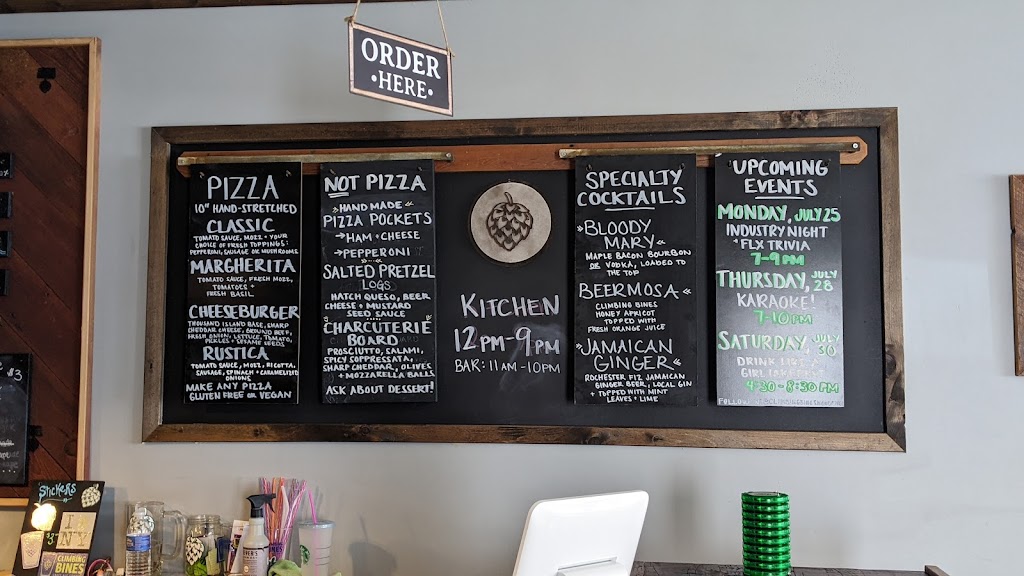 ORDER
•HERE•
PIZZA
10" HAND-STRETCHED
CLASSIC
TOMATO SAUCE, MOZZ + YOUR
CHOICE OF FRESH TOPPINGS:
PEPPERONI, SAUSAGE OR MUSHROOMS
MARGHERITA
TOMATO SAUCE, FRESH MOZZ,
TOMATOES +
FRESH BASIL
CHEESEBURGER
THOUSAND ISLAND BASE, SHARP
CHEDDAR CHEESE, GROUND BEEF,
FRESH ONION, LETTUCE, TOMATO,
PICKLES + SESAME SEEDS
RUSTICA
TOMATO SAUCE, MOZZ, RICOTTA,
SAUSAGE, SPINACH + CARAMELIZED
ONIONS
MAKE ANY PIZZA
GLUTEN FREE OR VEGAN
NOT PIZZA
HAND MADE
PIZZA POCKETS
→HAM + CHEESE
→PEPPERONI
SALTED PRETZEL
LOGS
HATCH QUESO, BEER
CHEESE + MUSTARD
SEED SAUCE
CHARCUTERIE
BOARD
PROSCIUTTO, SALAMI,
SPICY SOPPRESSATA,
SHARP CHEDDAR, OLIVES
+ MOZZARELLA BALLS
ASK ABOUT DESSERT!
KITCHEN
12PM-9PM
BAR: 11AM-10PM
SPECIALTY
COCKTAILS
BLOODY
MARY
MAPLE BACON BOURBON
OR VODKA, LOADED TO
THE TOP
BEERMOSA
CLIMBING BINES
HONEY APRICOT
TOPPED WITH
FRESH ORANGE JUICE
JAMAICAN
GINGER
ROCHESTER FIZ JAMAICAN
GINGER BEER, LOCAL GIN
+ TOPPED WITH MINT
LEAVES + LIME
UPCOMING
EVENTS
MONDAY, JULY 25
INDUSTRY NIGHT
+ FLX TRIVIA
7-9PM
THURSDAY, JULY 28
KARAOKE!
7-10PM
SATURDAY, JULY 30
DRINK LIKE A
GIRL
4:30-8:30 PM
STICKERS
I
NY
CLIMBING
BINES
$3